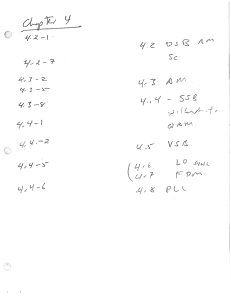 Chapter 4
4.2-1
4.2-7
4.3-2
4.3-5
4.3-8
4.4-1
4.4-2
4.4-5
4.4-6
4.2 DSB AM
SC
4.3 AM
4.4 - SSB
QAM
4.5 VSB
4.6 LO
4.7 FDM
4.8 PLL